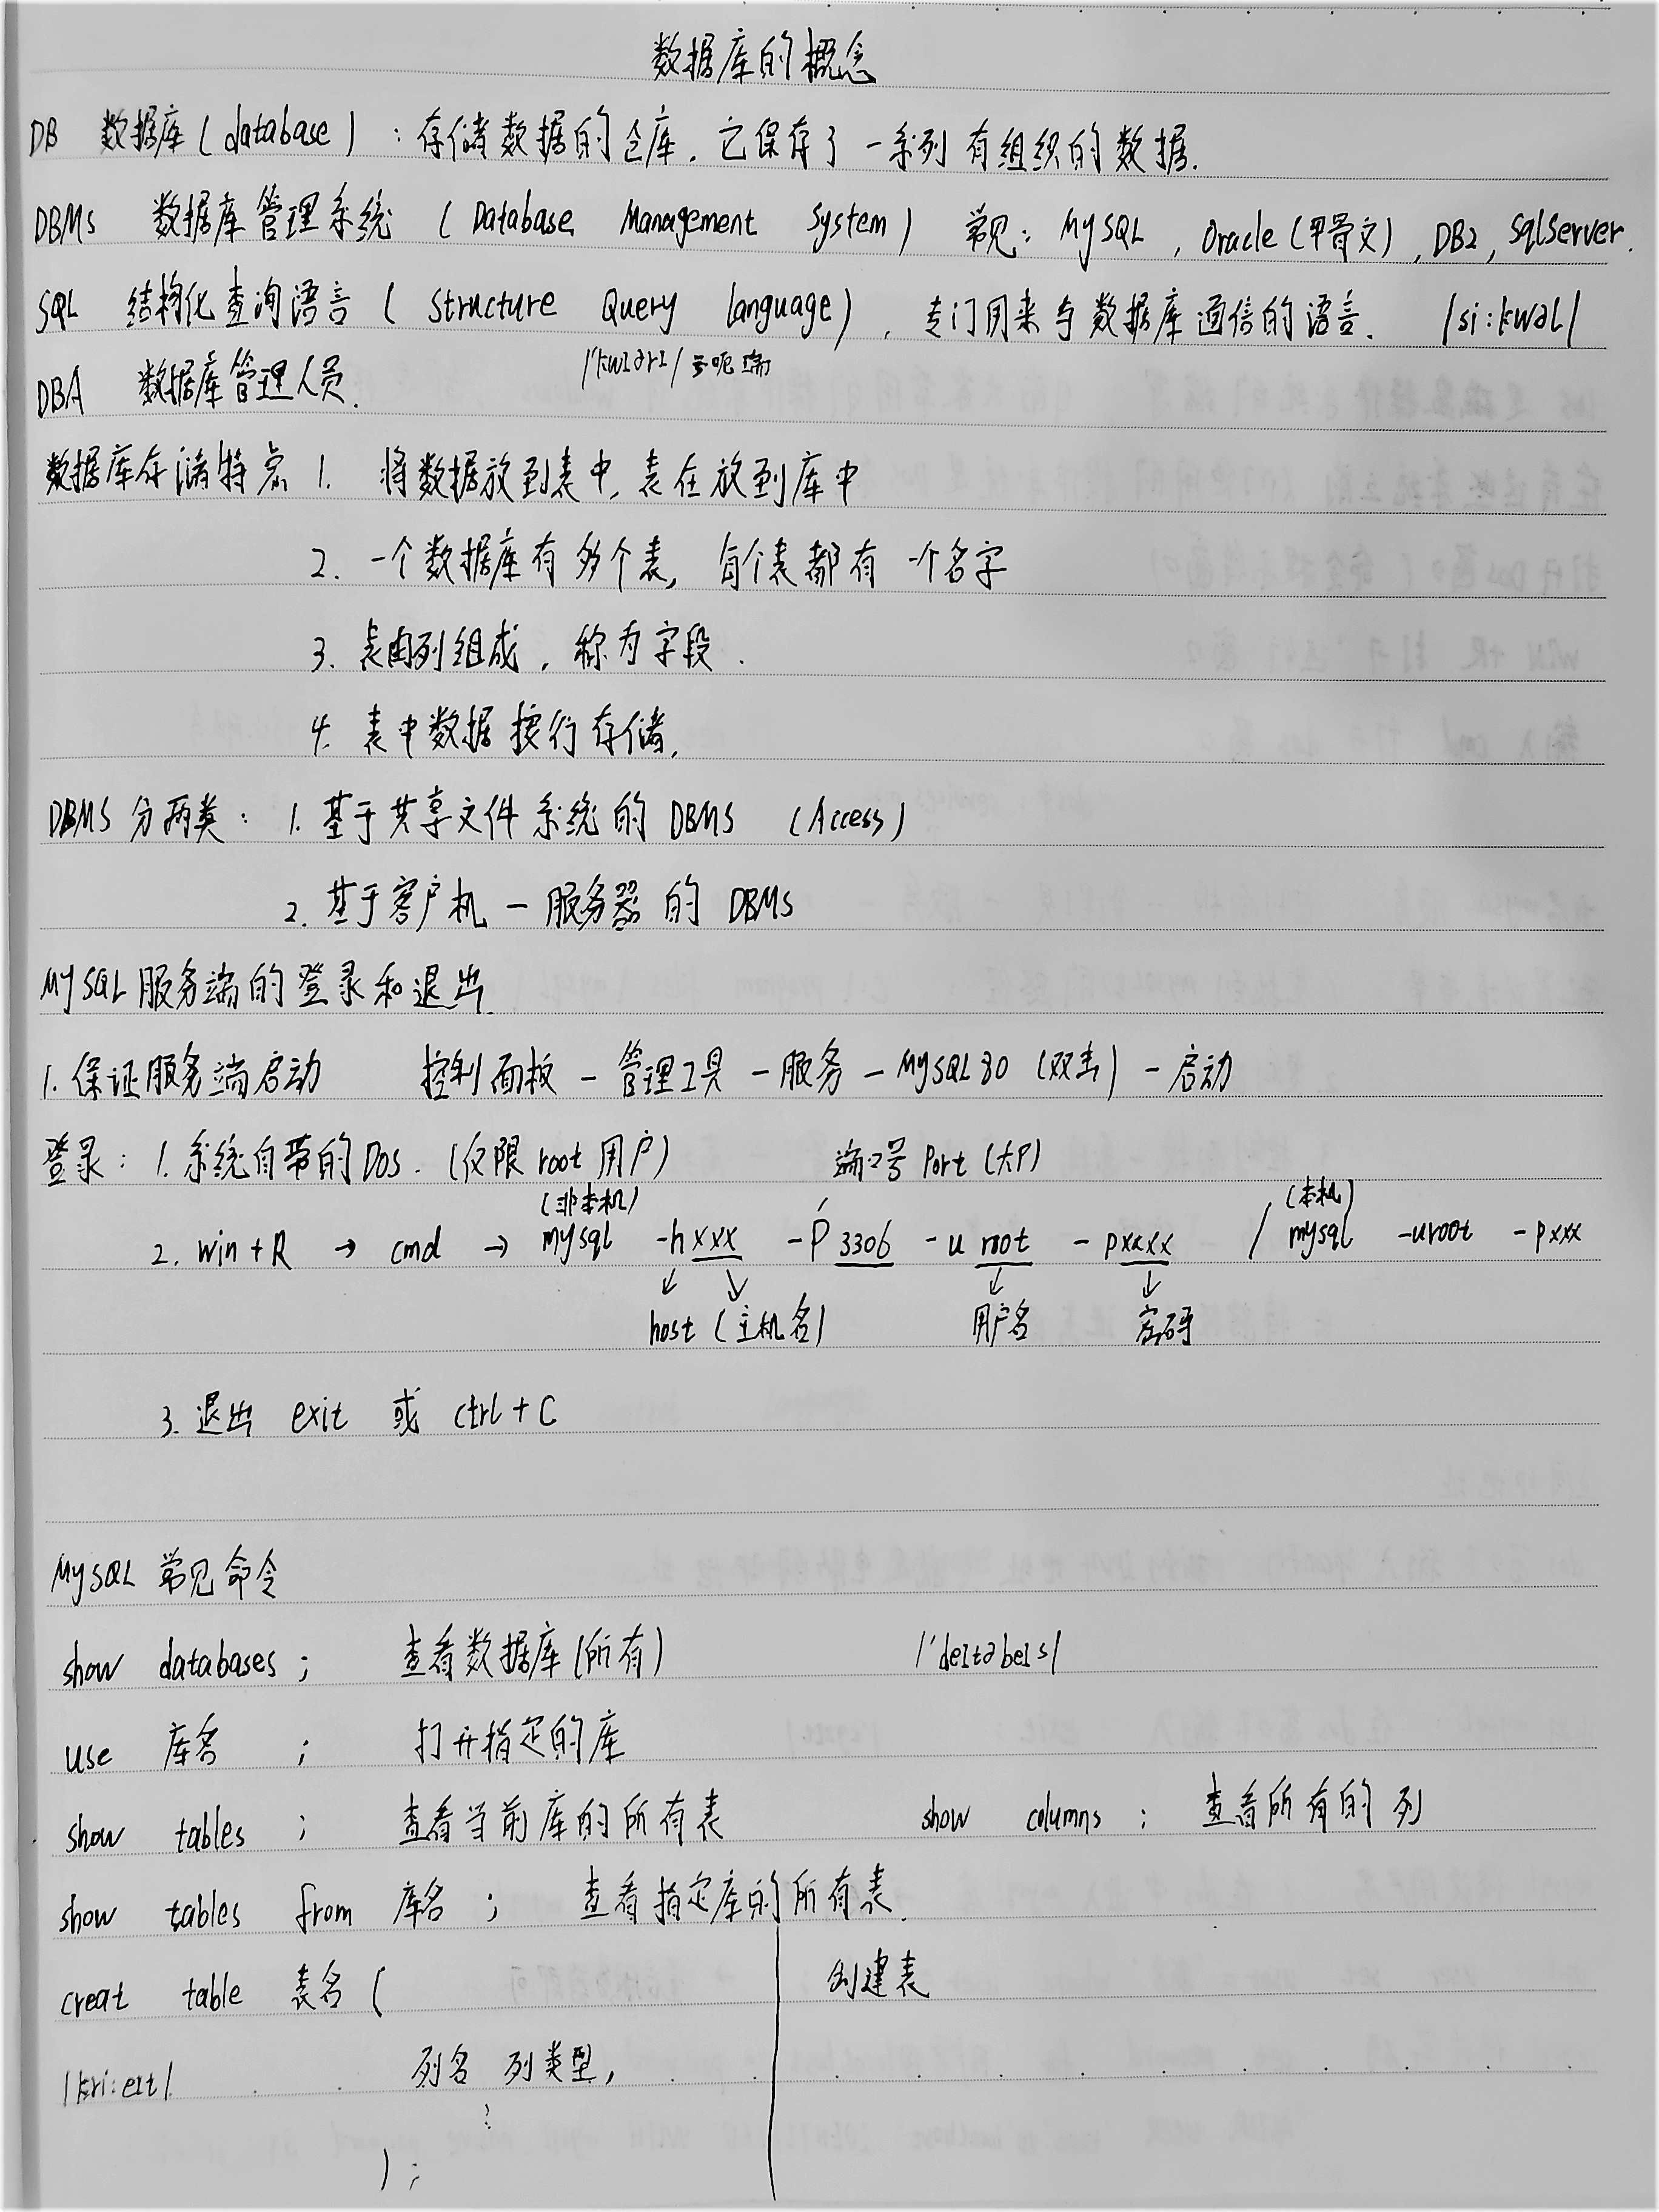 数据库的概念
DB 数据库(database):存储数据的仓库.它保存了一系列有组织的数据.
DBMS 数据库管理系统 (Database Management System) 常见:MySQL,Oracle(甲骨文),DB2,SqlServer.
SQL 结构化查询语言 (Structure Query language),专门用来与数据库通信的语言. /si:kwəl/
/'kwɪərɪ/
DBA 数据库管理人员.
数据库存储特点 1. 将数据放到表中,表在放到库中
2. 一个数据库有多个表,每个表都有一个名字
3. 表由列组成,称为字段.
4. 表中数据按行存储.
DBMS分两类: 1. 基于共享文件系统的DBMS (Access)
2. 基于客户机-服务器的DBMS
MySQL服务端的登录和退出.
1. 保证服务端启动 控制面板-管理工具-服务-MySQL80(双击)-启动
登录: 1. 系统自带的Dos.(仅限root用户) 端口号 Port (大P)
(非本机) (本机)
2. win+R → cmd → mysql -hxxx -P 3306 -u root -pxxxx / mysql -uroot -pxxx
host (主机名) 用户名 密码
3. 退出 exit 或 ctrl+C
MySQL 常见命令
show databases; 查看数据库(所有) /'deɪtəbeɪs/
use 库名 ; 打开指定的库
show tables ; 查看当前库的所有表 show columns ; 查看所有的列
show tables from 库名 ; 查看指定库的所有表.
creat table 表名( 创建表
/kri:eɪt/ 列名 列类型,
);